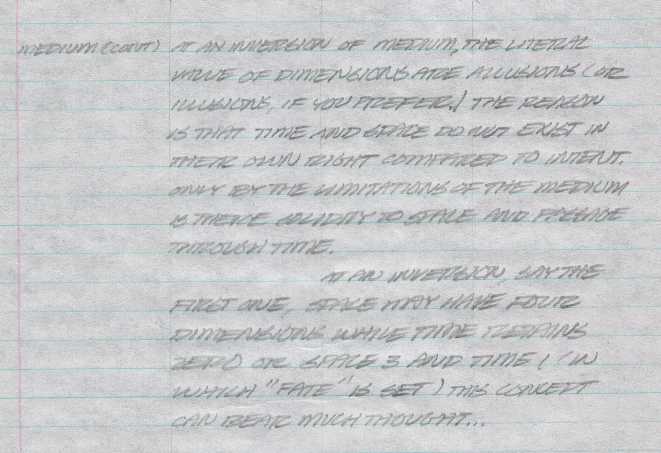 MEDIUM (CONT) AT AN INVERSION OF MEDIUM, THE LITERAL
VALUE OF DIMENSIONS ARE ALLUSIONS (OR
ILLUSIONS, IF YOU PREFER.) THE REASON
IS THAT TIME AND SPACE DO NOT EXIST IN
THEIR OWN RIGHT COMPARED TO INTENT.
ONLY BY THE LIMITATIONS OF THE MEDIUM
IS THERE SOLIDITY TO SPACE AND PASSAGE
THROUGH TIME.
AT AN INVERSION, SAY THE
FIRST ONE, SPACE MAY HAVE FOUR
DIMENSIONS WHILE TIME RETAINS
ZERO OR SPACE 3 AND TIME 1 (IN
WHICH "FATE" IS SET) THIS CONCEPT
CAN BEAR MUCH THOUGHT...